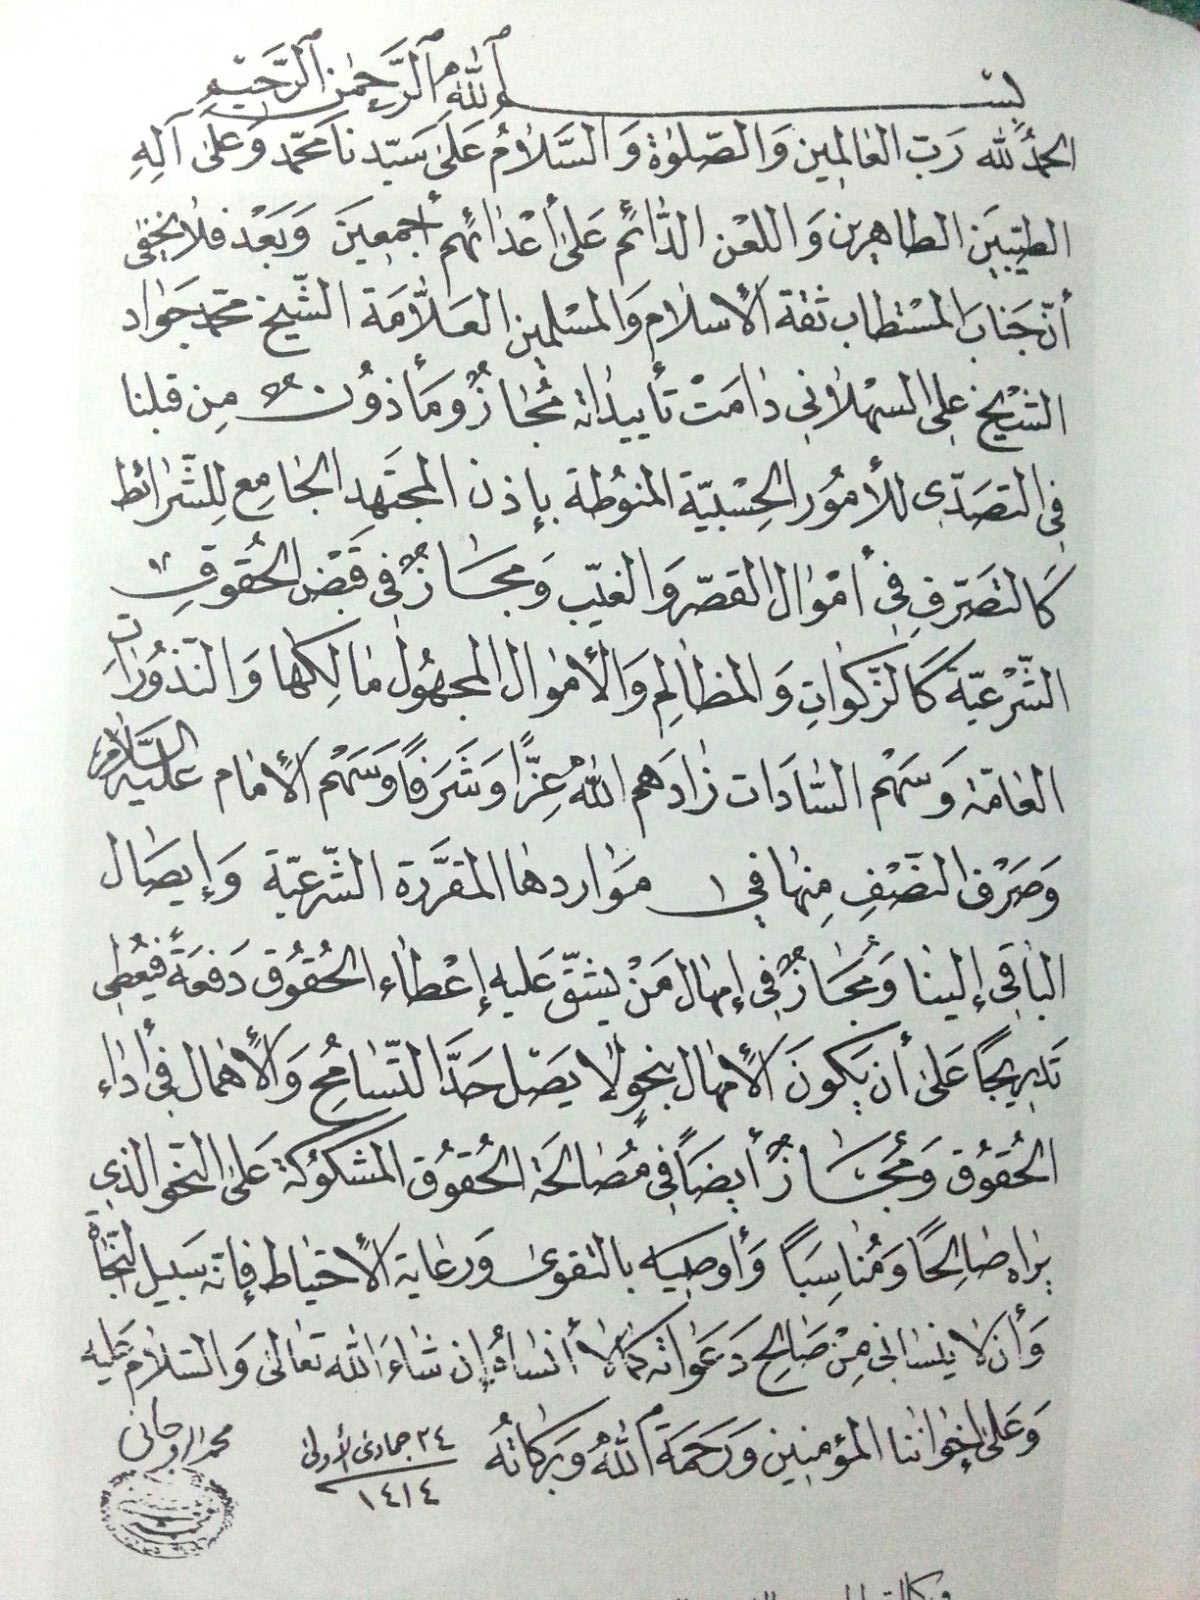 بسم الله الرحمن الرحيم
الحمد لله رب العالمين والصلوة والسلام على سيدنا محمد وعلى آله
الطيبين الطاهرين واللعن الدائم على أعدائهم أجمعين وبعد فلا يخفى
أن جناب المستطاب ثقة الاسلام والمسلمين العلامة الشيخ محمد جواد
الشيخ علي السهلاني دامت تأييداته مجاز ومأذون من قبلنا
في التصدي للأمور الحسبية المنوطة بإذن المجتهد الجامع للشرائط
كالتصرف في أموال القصر والغيب ومجاز في قبض الحقوق
الشرعية كالزكوات والمظالم والأموال المجهول مالكها والنذورات
العامة وسهم السادات زادهم الله عزا وشرفا وسهم الامام عليه السلام
وصرف النصف منها في مواردها المقررة الشرعية وإيصال
الباقي إلينا ومجاز في إمهال من يشق عليه إعطاء الحقوق دفعة فيعطى
تدريجا على أن يكون الامهال بنحو لا يصل حد التسامح والاهمال في أداء
الحقوق ومجاز أيضا في مصالحة الحقوق المشكوكة على النحو الذي
يراه صالحا ومناسبا وأوصيه بالتقوى ورعاية الاحتياط فإنه سبيل النجاة
وأن لا ينساني من صالح دعواته كما لا أنساه إن شاء الله تعالى والسلام عليه
وعلى إخواننا المؤمنين ورحمة الله وبركاته ٢٤ جمادى الأولى
١٤١٤
محمد الروحاني